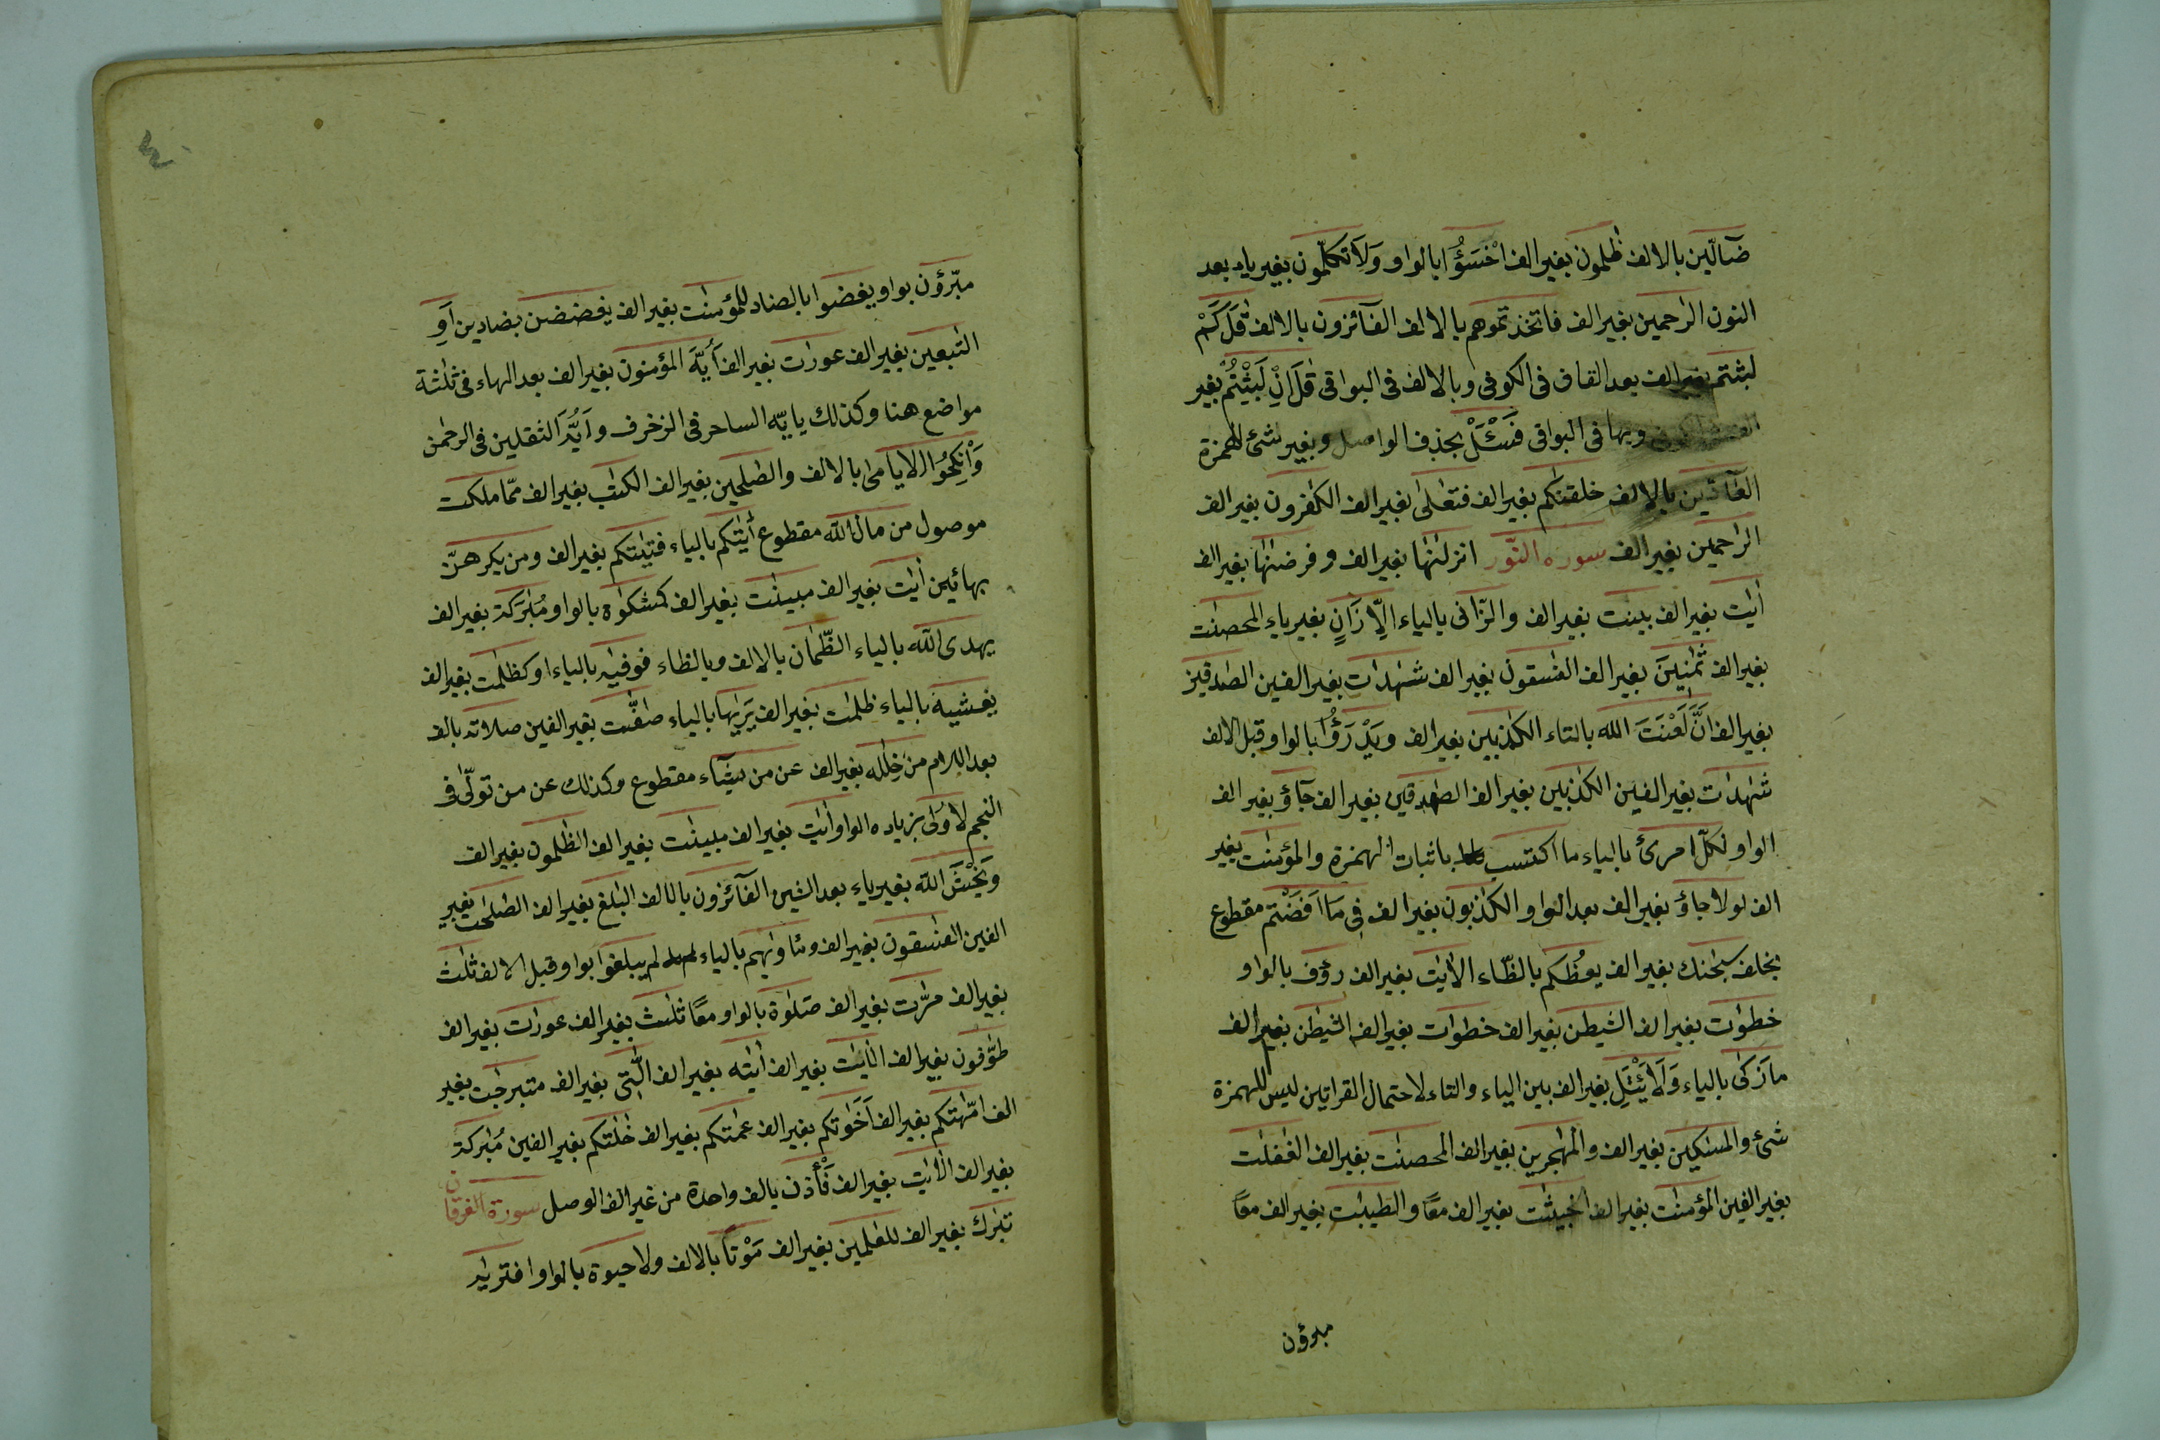 ضآلّين بالالف ظٰلمون بغير الف اخْسَؤُا بالواو وَلَا تكلّمون بغير ياء بعد
النون الرٰحمين بغير الف فاتخذتموهم بالالف الفآئزون بالالف قٰلَ كَمْ
لبثتم بغير الف بعد القاف فى الكوفى وبالالف فى البواقى قٰلَ اِنْ لَبِثْتُمْ بغير
وبها فى البواقى فَسْئَلْ بحذف الواصل وبغير شئ للهمزة
العآدّين بالالف خلقنٰكم بغير الف فتعٰلى بغير الف الكٰفرون بغير الف
الرٰحمين بغير الف سورة النّور انزلنٰها بغير الف وفرضنٰها بغير الف
اٰيٰت بغير الف بينٰت بغير الف والزّانى بالياء الّا زَانٍ بغير ياء المحصنٰت
بغير الف ثمٰنِينَ بغير الف الفٰسقون بغير الف شهٰدٰت بغير الفين الصٰدقين
بغير الف اَنَّ لَعْنَتَ الله بالتاء الكٰذبين بغير الف ويَدْرَؤُا بالواو قبل الالف
شهٰدٰت بغير الفين الكٰذبين بغير الف الصٰدقين بغير الف جآؤ بغير الف
الواو لكلّ امرئ بالياء ما اكتسب باثبات الهمزة والمؤمنٰت بغير
الف لولا جاؤ بغير الف بعد الواو الكٰذبون بغير الف فِى مَا اَفَضْتم مقطوع
بخلف سبحٰنك بغير الف يعِظُكم بالظّاء الاٰيٰت بغير الف رؤف بالواو
خطوٰت بغير الف الشيطٰن بغير الف خطوٰت بغير الف الشيطٰن بغير الف
ما زَكٰى بالياء وَلَا يَئْتَلِ بغير الف بين الياء والتاء لاحتمال القراتين ليس للهمزة
شئ والمسٰكين بغير الف والمهٰجرين بغير الف المحصنٰت بغير الف الغٰفلٰت
بغير الفين المؤمنٰت بغير الف الخبيثٰت بغير الف معًا والطيبٰت بغير الف معًا
مبرؤن
مبّرؤن بواو يغضوا بالضاد للمؤمنٰت بغير الف يغضضن بضادين اَوِ
التٰبعين بغير الف عورٰت بغير الف اَيُّهَ المؤمنون بغير الف بعد الهاء فى ثلٰثة
مواضع هنا وكذلك يايّه الساحر فى الزخرف واَيُّهَ الثقلين فى الرحمٰن
وَاَنْكِحُوا الايامى بالالف والصّٰلحين بغير الف الكتٰب بغير الف ممّا ملكت
موصول من مال الله مقطوع اٰتٰيكم بالياء فتيٰتكم بغير الف ومن يكرههنّ
بهائين اٰيٰت بغير الف مبينٰت بغير الف كمشكوٰة بالواو مُبٰرَكة بغير الف
يهدى الله بالياء الظّمان بالالف وبالظاء فوفّيٰه بالياء او كظلمٰت بغير الف
يغشيه بالياء ظلمٰت بغير الف يَرٰيها بالياء صٰفّٰت بغير الفين صلاته بالف
بعد اللام من خِلٰله بغير الف عن من يشآء مقطوع وكذلك عن من تولّى فى
النجم لاُولى بزيادة الواو اٰيٰت بغير الف مبينٰت بغير الف الظٰلمون بغير الف
ويَخْشَ الله بغير ياء بعد الشين الفآئزون بالالف البلٰغ بغير الف الصٰلحٰت بغير
الفين الفٰسقون بغير الف ومأويٰهم بالياء لم يبلغوا بواو قبل الالف ثلٰث
بغير الف مرّٰت بغير الف صَلوٰة بالواو معًا ثلٰث بغير الف عورٰت بغير الف
طوّٰفون بغير الف الاٰيٰت بغير الف اٰيٰته بغير الف الّٰتى بغير الف متبرجٰت بغير
الف امّهٰتكم بغير الف اَخَوٰتكم بغير الف عمٰتكم بغير الف خٰلٰتكم بغير الفين مُبٰركة
بغير الف الاٰيٰت بغير الف فَأْذن بالف واحدة من غير الف الوصل سورة الفرقان
تبٰرك بغير الف للعٰلمين بغير الف مَوْتًا بالالف ولا حيوة بالواو افتريٰه